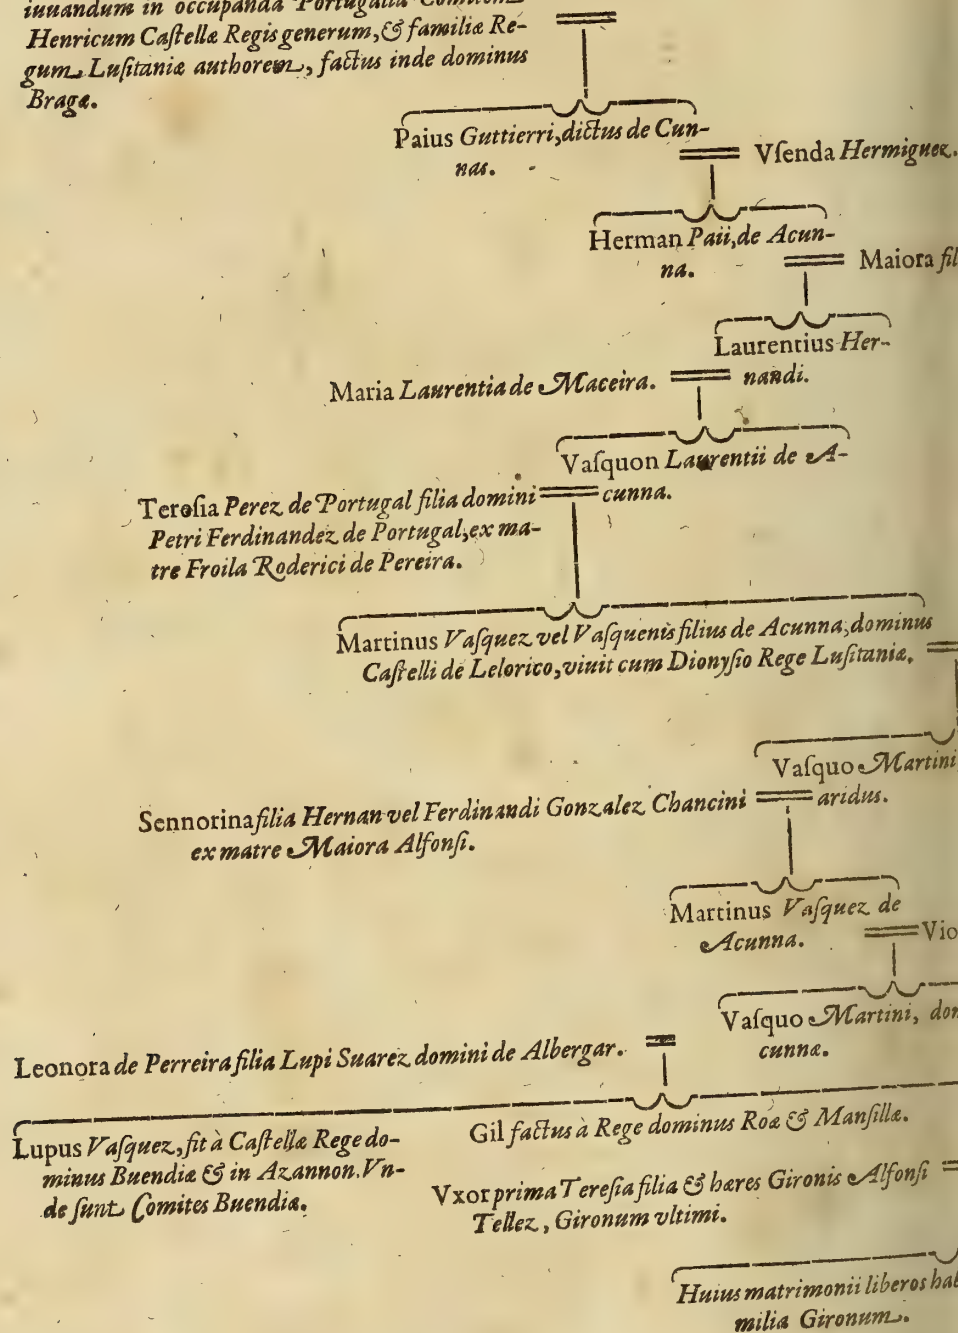 iuuandum in occupanda Portugallia Comitem
Henricum Caſtellæ Regis generum, & familiæ Re-
gum Luſitaniæ authorem, factus inde dominus
Bragæ.
Paius Guttierri, dictus de Cun-
nas.
Vſenda Hermiguez.
Herman Paii, de Acun-
na.
Maiora fil
Laurentius Her-
nandi.
Maria Laurentia de Maceira.
Vaſquon Laurentii de A-
cunna.
Tereſia Perez de Portugal filia domini
Petri Ferdinandez de Portugal, ex ma-
tre Froila Roderici de Pereira.
Martinus Vaſquez vel Vaſquenis filius de Acunna, dominus
Caſtelli de Lelorico, viuit cum Dionyſio Rege Luſitaniæ.
Vaſquo Martini
aridus.
Sennorina filia Hernan vel Ferdinandi Gonzalez Chancini
ex matre Maiora Alfonſi.
Martinus Vaſquez de
Acunna.
Vio
Vaſquo Martini, don
cunnæ.
Leonora de Perreira filia Lupi Suarez domini de Albergar.
Lupus Vaſquez, fit à Caſtellæ Rege do-
minus Buendiæ & in Azannon. Vn-
de ſunt Comites Buendiæ.
Gil factus à Rege dominus Roæ & Manſillæ.
Vxor prima Tereſia filia & hæres Gironis Alfonſi
Tellez, Gironum vltimi.
Huius matrimonii liberos hab
milia Gironum.